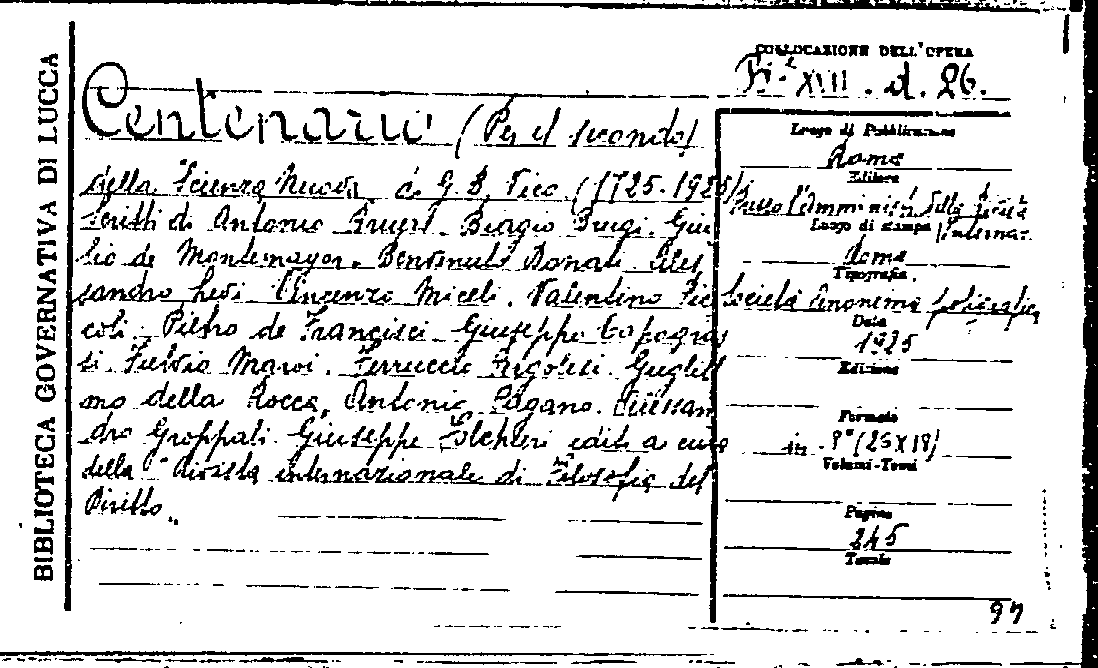 BIBLIOTECA GOVERNATIVA DI LUCCA
COLLOCAZIONE DELL'OPERA
XVII. d. 26.
Centenario (Per il secondo)
della "Scienza Nuova" di G. B. Vico (1725-1925)
Scritti di Antonio Bruers. Biagio Brugi. Giu
lio de Montemayor. Benvenuto Donati. Ales
sandro Levi. Vincenzo Miceli. Valentino Pic
coli. Pietro de Francisci. Giuseppe Capogras
si. Fulvio Maroi. Ferruccio Pergolesi. Gugliel
mo della Rocca, Antonio Pagano. Alessan
dro Groppali. Giuseppe Folchieri editi a cura
della "Rivista internazionale di Filosofia del
Diritto„
Luogo di Pubblicazione
Roma
Editore
presso l'Amminist. della Rivista
Internaz.
Luogo di stampa
Roma
Tipografia
Società Anonima poligrafica
Data
1925
Edizione
Formato
in - 8° (25X18)
Volumi-Tomi
Pagine
245
Tavole
97